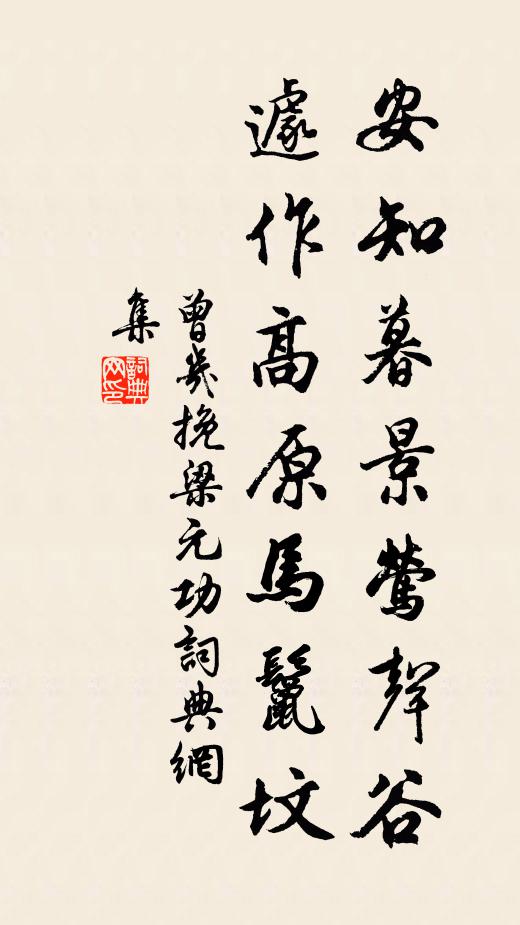 安知暮景鶯聲谷
遽作高原馬鬣坟
曾幾挽梁元功詞典網
集
詞典網印